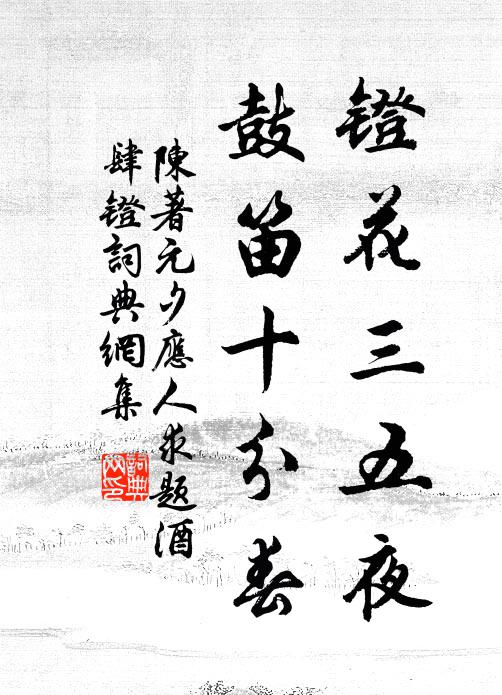 鐙花三五夜
鼓笛十分春
陳著元夕應人求題酒
肆鐙詞典網集
詞典
网印